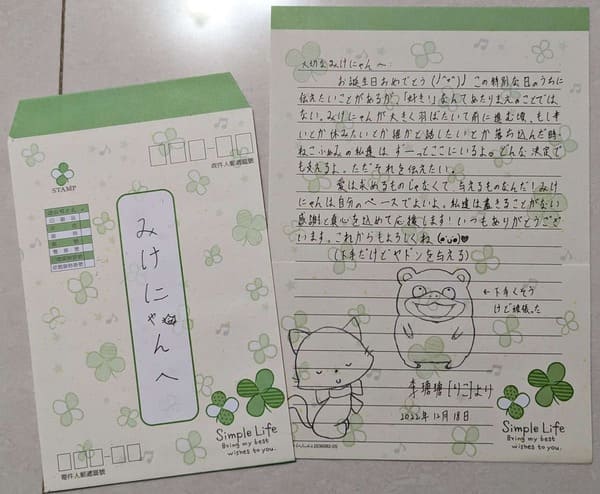 收件人郵遞區號
STAMP
みけにゃんへ
Simple Life
Bring my best
wishes to you.
寄件人郵遞區號
大切なみけにゃんへ:
お誕生日おめでとう(ﾉﾞ▽ﾞ)ﾉ この特別な日のうちに
伝えたいことがあるが、「好き!」なんてあたりまえのことでは
ない。みけにゃんが大きく羽ばたいて前に進む頃、もしキ
いとか休みたいとか誰かと話したいとか落ち込んだ時
ねこふぁみの私達はずーっとここにいるよ。どんな決定で
も支えるよ。ただそれを伝えたい。
愛は求めるものじゃなくて与えるものなんだ!みけ
にゃんは自分のペースでよいよ。私達は尽きることがない
感謝と真心を込めて応援します!いつもありがとうござ
います。これからもよろしくね(●'ω'●)♥
(下手だけどヤドンを与える)
←下手くそう
けど頑張った
李瑭瑭[りこ]より
2022年12月18日
Simple Life
Bring my best
wishes to you.